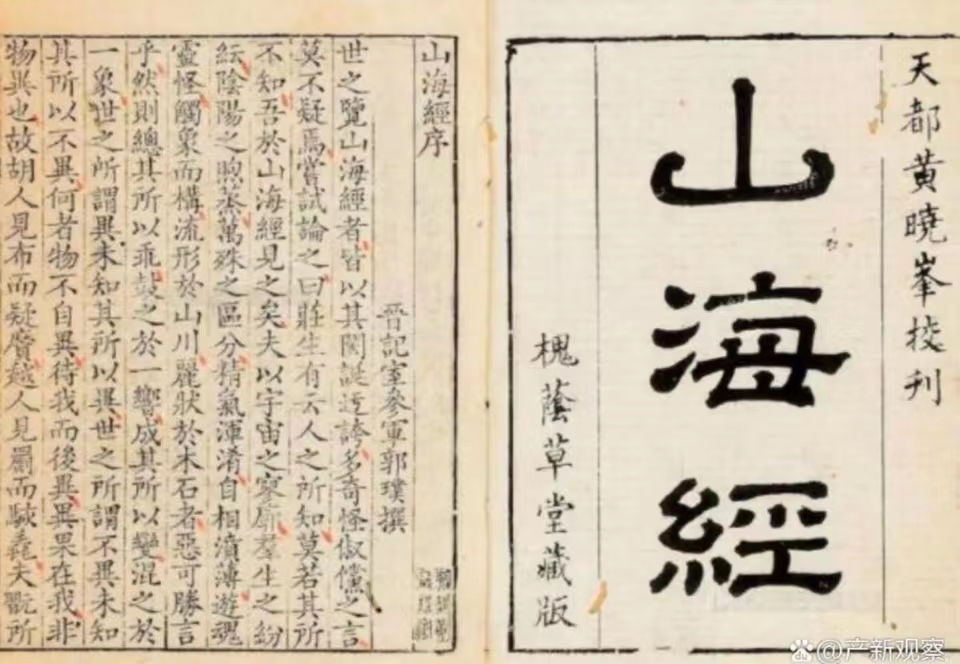 天都黃曉峯校刊
山海經
槐蔭草堂藏版
山海經序
晉記室參軍郭璞撰
世之覽山海經者皆以其閎誕迂誇多奇怪俶儻之言
莫不疑焉嘗試論之曰莊生有云人之所知莫若其所
不知吾於山海經見之矣夫以宇宙之寥廓羣生之紛
紜陰陽之煦蒸萬殊之區分精氣渾淆自相濆薄遊魂
靈怪觸象而構流形於山川麗狀於木石者惡可勝言
乎然則總其所以乖鼓之於一響成其所以變混之於
一象世之所謂異未知其所以異世之所謂不異未知
其所以不異何者物不自異待我而後異異果在我非
物異也故胡人見布而疑黂越人見罽而駭毳夫翫所
@产新观察